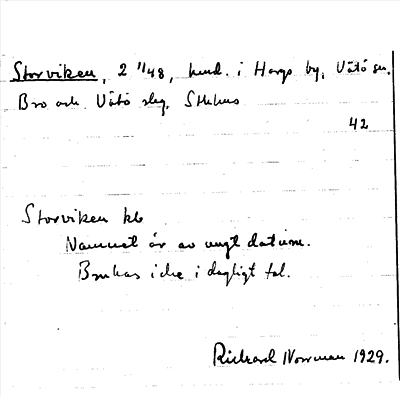 Storviken, 2 11/48, hmd. i Hargs by, Vätö sn.
Bro och Vätö slg, Sthlms
42
Storviken kb
Namnet är av ungt datum.
Brukas icke i dagligt tal.
Rickard Norrman 1929.